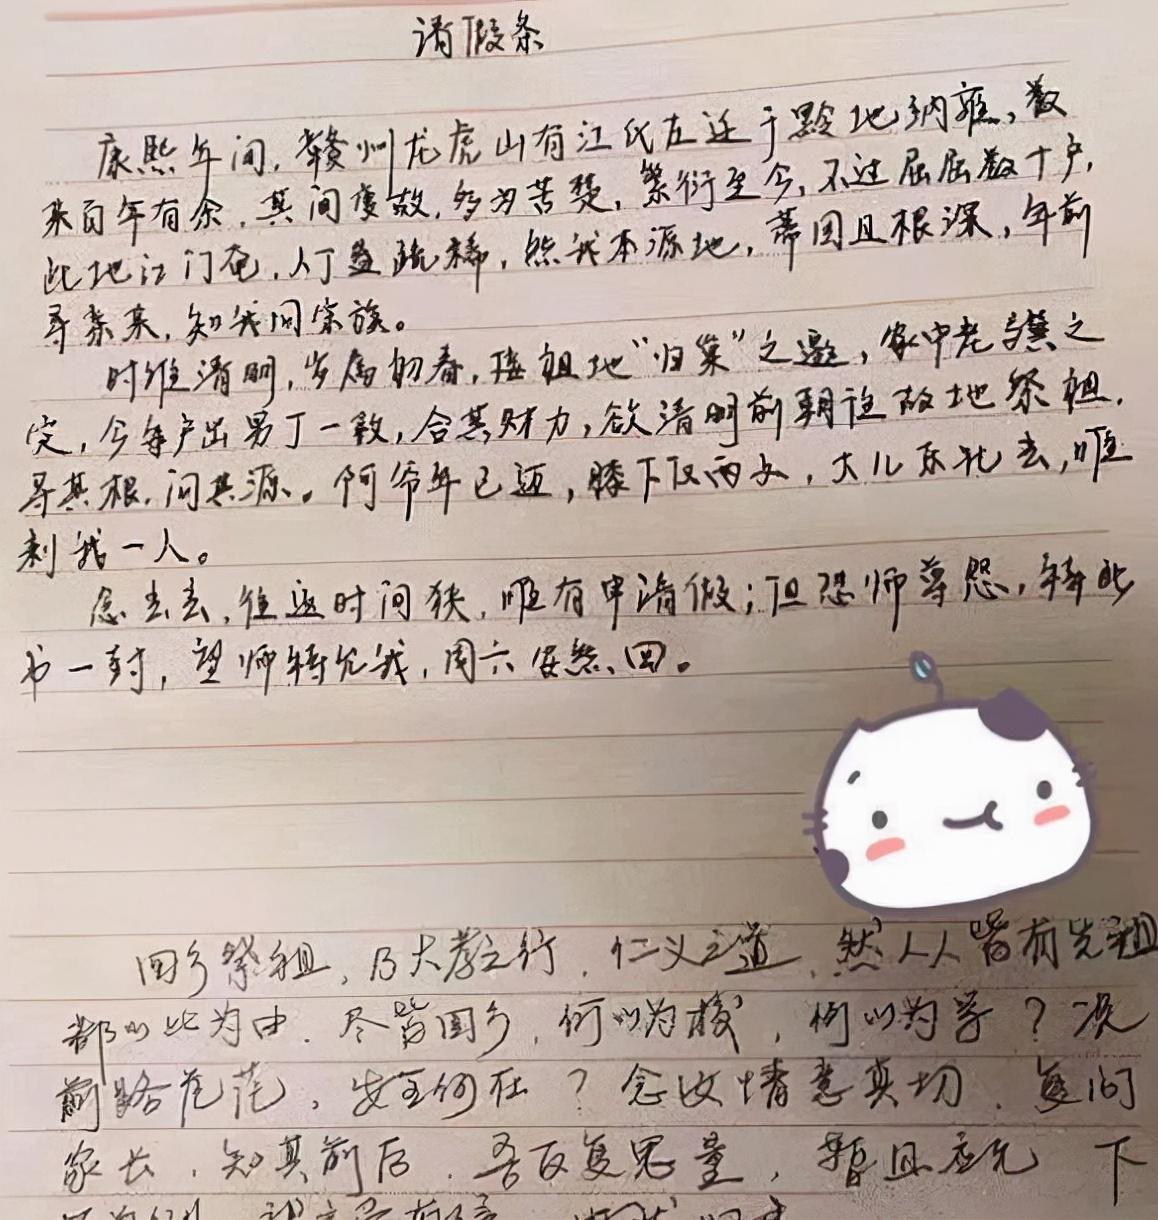 请假条
康熙年间，赣州龙虎山有江氏左迁于黔地纳雍，数
来百年有余，其间变故，多为苦楚，繁衍至今，不过屈屈数十户，
此地江门奄，人丁益疏稀，然我本源地，蒂固且根深，年前
寻亲来，知我同宗族。
时维清明，岁属初春，接祖地“归巢”之邀，家中老
定，今每户出男丁一数，合其财力，欲清明前朝往故地祭祖，
寻其根，问其源。阿爷年已迈，膝下仅两女，大儿东北去，唯
剩我一人。
念去去，往返时间狭，唯有申请假；但恐师尊怨，特此
书一封，望师特允我，周六安然回。
回乡祭祖，乃大孝之行，仁义之道，然人人皆有先祖
都以此为由，尽皆回乡，何以为校，何以为学？况
前路茫茫，安全何在？念汝情意真切，复问
家长，知其前后，吾反复思量，暂且应允 下